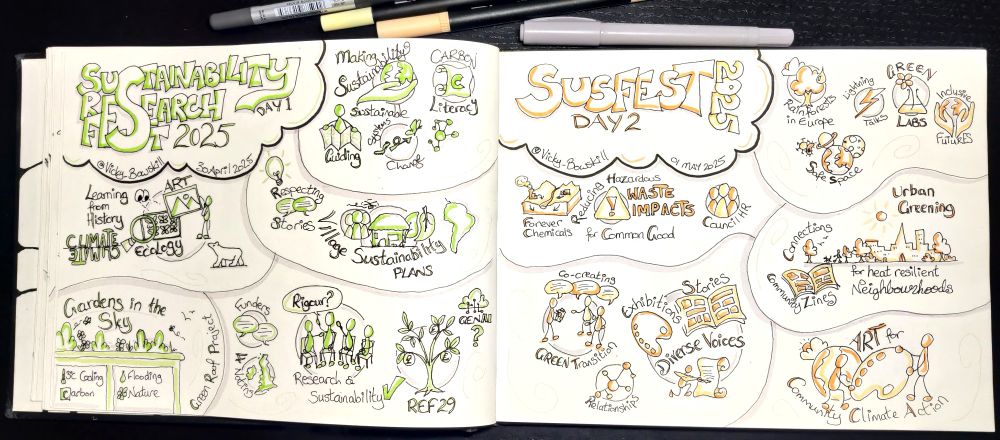 SUSTAINABILITY
RESEARCH
FEST 2025
DAY 1
@Vicky-Bowskill
30 April 2025
Making
Sustainability
CARBON
Literacy
Sustainable
Guiding
Systems
Change
Learning
from
History
ART
Ecology
CLIMATE
Respecting
Stories
Village Sustainability
PLANS
Gardens in the
Sky
°C Cooling
Flooding
Carbon
Nature
Green Roof Project
Funders
Rigour?
Research &
Sustainability
GENAI
?
REF29
SUSFEST 2025
DAY 2
@Vicky-Bowskill
01 MAY 2025
Rainforests
in Europe
Lightning
Talks
GREEN
LABS
Inclusive
FUTURES
Safe Space
Forever
Chemicals
Reducing
Hazardous
WASTE
IMPACTS
for Common Good
Council HR
Urban
Greening
Connections
Community Zines
for heat resilient
Neighbourhoods
Co-creating
GREEN Transition
Relationships
Exhibitions
Stories
Diverse Voices
ART for
Community Climate Action